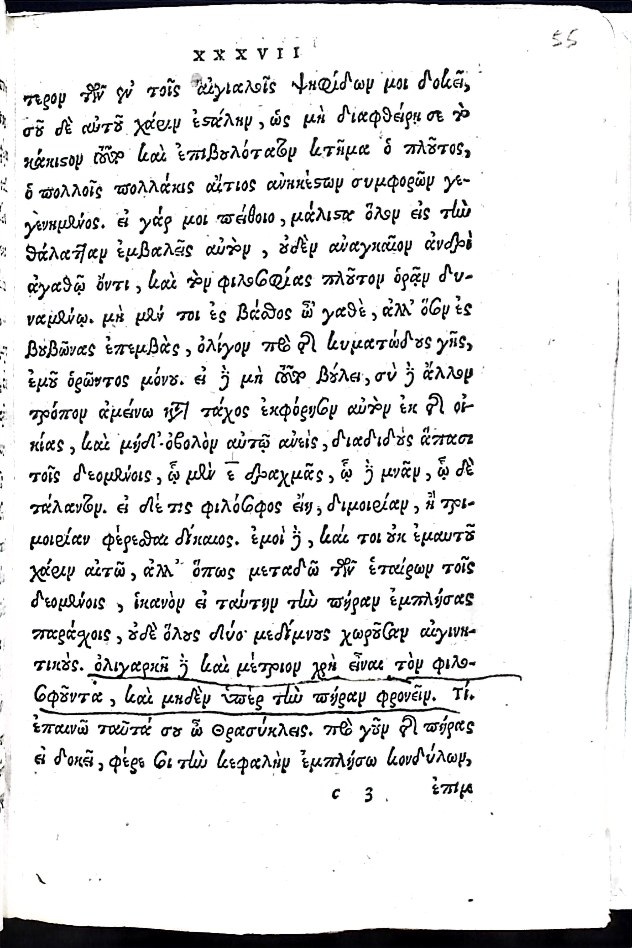 XXXVII
55
τερον τῶν ἐν τοῖς αἰγιαλοῖς ψηφίδων μοι δοκεῖ,
σοῦ δὲ αὐτοῦ χάριν ἐστάλην, ὡς μὴ διαφθείρῃ σε τὸ
κάκιστον τοῦτο καὶ ἐπιβουλότατον κτῆμα ὁ πλοῦτος,
ὁ πολλοῖς πολλάκις αἴτιος ἀνηκέστων συμφορῶν γε-
γενημένος. εἰ γάρ μοι πείθοιο, μάλιστα ὅλον εἰς τὴν
θάλατταν ἐμβαλεῖς αὐτὸν, οὐδὲν ἀναγκαῖον ἀνδρὶ
ἀγαθῷ ὄντι, καὶ τὸν φιλοσοφίας πλοῦτον ὁρᾷν δυ-
ναμένῳ. μὴ μέν τοι ἐς βάθος ὦ' γαθὲ, ἀλλ' ὅσον ἐς
βουβῶνας ἐπεμβὰς, ὀλίγον πρὸ τῆς κυματώδους γῆς,
ἐμοῦ ὁρῶντος μόνου. εἰ δὲ μὴ τοῦτο βούλει, σὺ δὲ ἄλλον
τρόπον ἀμείνω κατὰ τάχος ἐκφόρησον αὐτὸν ἐκ τῆς οἰ-
κίας, καὶ μηδ' ὀβολὸν αὐτῷ ἀνεὶς, διαδιδοὺς ἅπασι
τοῖς δεομένοις, ᾧ μὲν ε̄ δραχμᾶς, ᾧ δὲ μνᾶν, ᾧ δὲ
τάλαντον. εἰ δέ τις φιλόσοφος εἴη, διμοιρίαν, ἢ τρι-
μοιρίαν φέρεσθαι δίκαιος. ἐμοὶ δὲ, καί τοι οὐκ ἐμαυτοῦ
χάριν αἰτῶ, ἀλλ' ὅπως μεταδῶ τῶν ἑταίρων τοῖς
δεομένοις, ἱκανὸν εἰ ταύτην τὴν πήραν ἐμπλήσας
παράσχοις, οὐδὲ ὅλους δύο μεδίμνους χωροῦσαν αἰγινη-
τικούς. ὀλιγαρκῆ δὲ καὶ μέτριον χρὴ εἶναι τὸν φιλο-
σοφοῦντα, καὶ μηδὲν ὑπὲρ τὴν πήραν φρονεῖν. Τί.
ἐπαινῶ ταῦτά σου ὦ Θρασύκλεις. πρὸ γοῦν τῆς πήρας
εἰ δοκεῖ, φέρε σοι τὴν κεφαλὴν ἐμπλήσω κονδύλων,
c 3 ἐπιμ